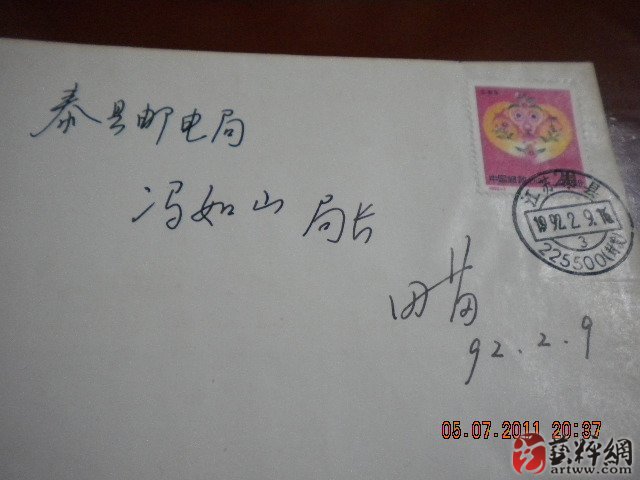 泰县邮电局
冯如山 局长
中国邮政
江苏泰县
1992.2.9.16
3
225500(村前)
田苗
92.2.9
05.07.2011 20:37
艺粹網
artww.com